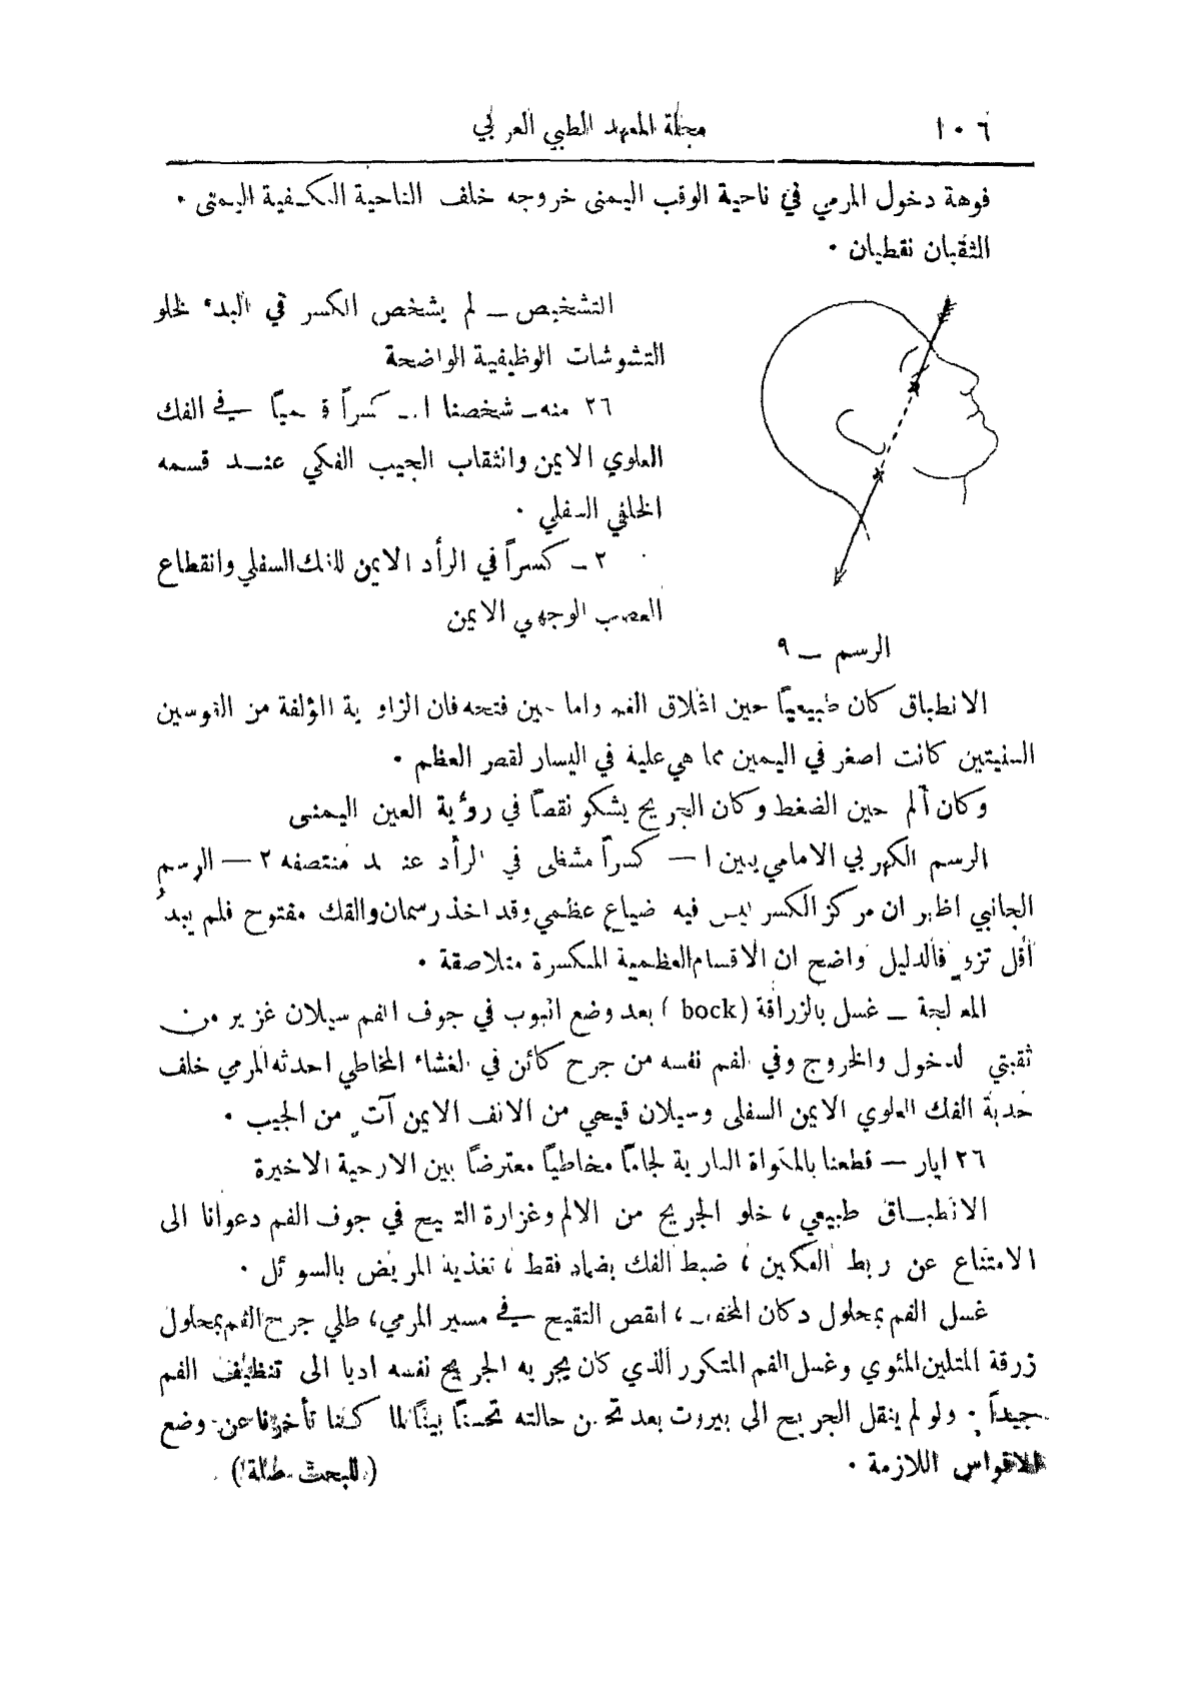 ١٠٦ مجلة المعهد الطبي العربي
فوهة دخول المرمي في ناحية الوقب اليمنى خروجه خلف الناحية النكفية اليمنى ·
الثقبان نقطيان ·
التشخيص — لم يشخص الكسر في البدء لخلو
التشوشات الوظيفية الواضحة
٢٦ منه — شخصنا ١ — كسراً في الفك
العلوي الايمن وانثقاب الجيب الفكي عنــد قسمه
الخلفي السفلي ·
٢ — كسراً في الرأد الايمن للفك السفلي وانقطاع
العصب الوجهي الايمن
الرسم — ٩
الانطباق كان طبيعياً حين انغلاق الفم واما حين فتحه فان الزاوية المؤلفة من القوسين
السنيتين كانت اصغر في اليمين مما هي عليه في اليسار لقصر العظم ·
وكان ألم حين الضغط وكان الجريح يشكو نقصاً في رؤية العين اليمنى
الرسم الكهربي الامامي يبين ١ — كسراً مشظى في الرأد عند منتصفه ٢ — الرسم
الجانبي اظهر ان مركز الكسر ليس فيه ضياع عظمي وقد اخذ رسمان والفك مفتوح فلم يبدُ
أقل تزوٍ فالدليل واضح ان الاقسام العظمية المكسرة متلاصقة ·
المعالجة — غسل بالزراقة (bock) بعد وضع انبوب في جوف الفم سيلان غزير من
ثقبتي الدخول والخروج وفي الفم نفسه من جرح كائن في الغشاء المخاطي احدثه المرمي خلف
حدبة الفك العلوي الايمن السفلى وسيلان قيحي من الانف الايمن آتٍ من الجيب ·
٢٦ ايار — قطعنا بالمكواة النارية لجاماً مخاطياً معترضاً بين الارحية الاخيرة
الانطبــاق طبيعي ، خلو الجريح من الالم وغزارة التقيح في جوف الفم دعوانا الى
الامتناع عن ربط الفكين ، ضبط الفك بضماد فقط ، تغذية المريض بالسوائل ·
غسل الفم بمحلول دكان المخفف ، انقص التقيح في مسير المرمي، طلي جرح الفم بمحلول
زرقة المتلين المئوي وغسل الفم المتكرر الذي كان يجريه الجريح نفسه اديا الى تنظيف الفم
جيداً · ولو لم ينقل الجريح الى بيروت بعد تحسن حالته تحسناً بيناً لما كنا تأخرنا عن وضع
الاقواس اللازمة · (للبحث صلة)